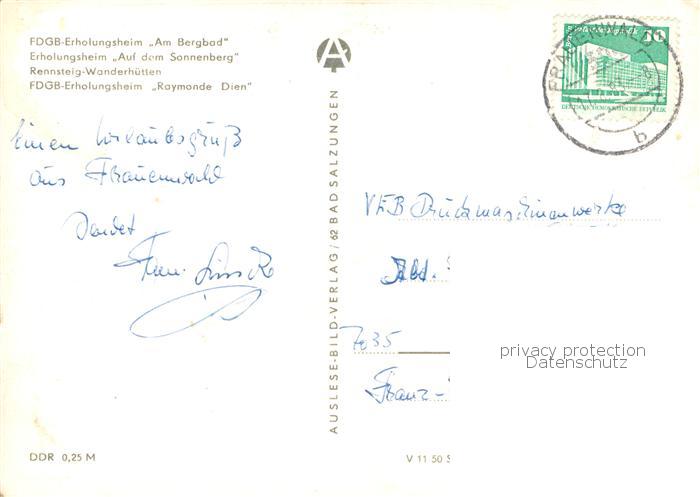 FDGB-Erholungsheim „Am Bergbad"
Erholungsheim „Auf dem Sonnenberg"
Rennsteig-Wanderhütten
FDGB-Erholungsheim „Raymonde Dien"
Einen Urlaubsgruß
aus Frauenwald
sendet
Fam.
DDR 0,25 M
AUSLESE-BILD-VERLAG / 62 BAD SALZUNGEN
V 11 50
10
DEUTSCHE DEMOKRATISCHE REPUBLIK
FRAUENWALD
b
VEB Druckmaschinenwerke
Abt.
7035
Franz-
privacy protection
Datenschutz